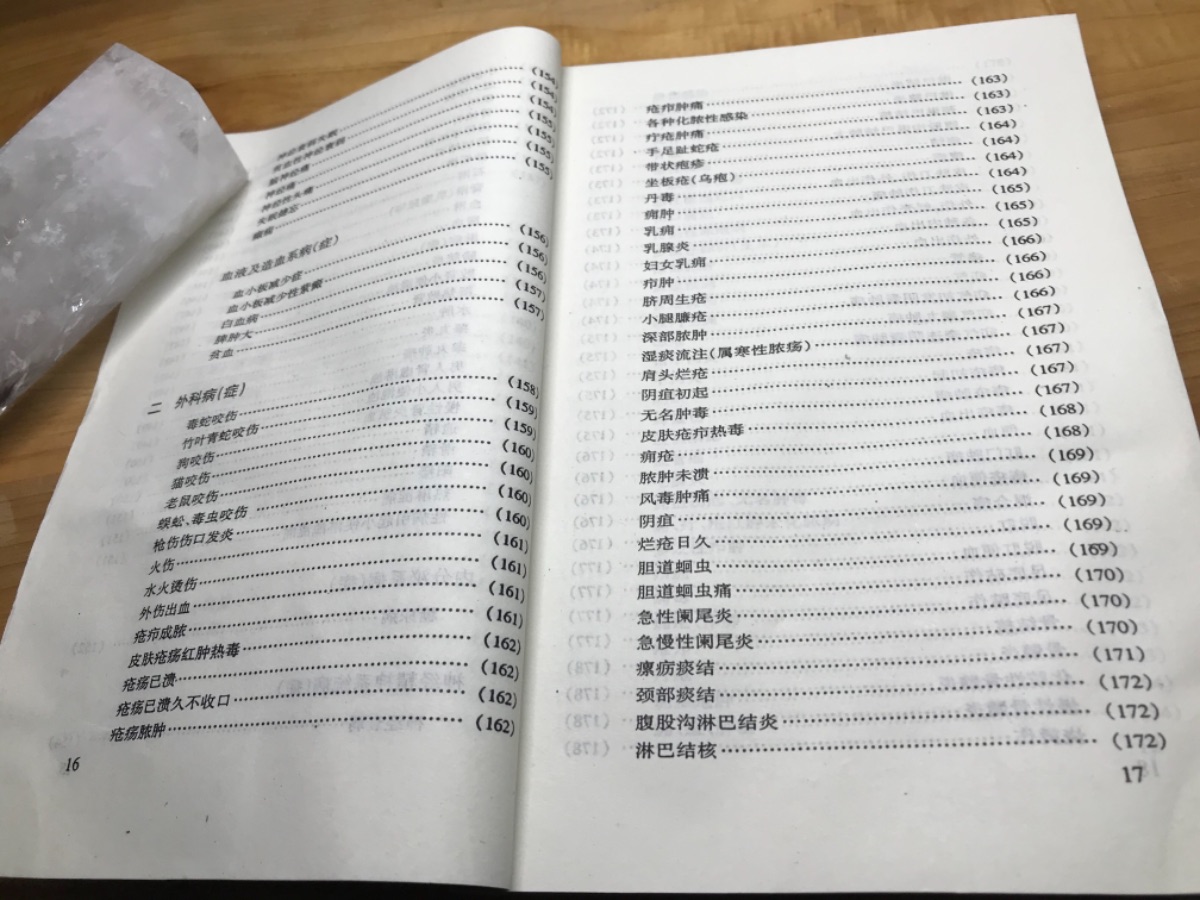 神经衰弱失眠……(154)
贫血性神经衰弱……(154)
脑神经痛……(154)
神经痛……(155)
神经性头痛……(155)
失眠健忘……(155)
癫痫……(155)
血液及造血系病(症)
血小板减少症……(156)
血小板减少性紫癜……(156)
白血病……(156)
脾肿大……(157)
贫血……(157)
二 外科病(症)
毒蛇咬伤……(158)
竹叶青蛇咬伤……(159)
狗咬伤……(159)
猫咬伤……(160)
老鼠咬伤……(160)
蜈蚣、毒虫咬伤……(160)
枪伤伤口发炎……(160)
火伤……(161)
水火烫伤……(161)
外伤出血……(161)
疮疖成脓……(161)
皮肤疮疡红肿热毒……(162)
疮疡已溃……(162)
疮疡已溃久不收口……(162)
疮疡脓肿……(162)
16
疮疖肿痛……(163)
各种化脓性感染……(163)
疔疮肿痛……(163)
手足趾蛇疮……(164)
带状疱疹……(164)
坐板疮(乌疱)……(164)
丹毒……(164)
痈肿……(165)
乳痈……(165)
乳腺炎……(165)
妇女乳痈……(166)
疖肿……(166)
脐周生疮……(166)
小腿臁疮……(166)
深部脓肿……(167)
湿痰流注(属寒性脓疡)……(167)
肩头烂疮……(167)
阴疽初起……(167)
无名肿毒……(167)
皮肤疮疖热毒……(168)
痈疮……(168)
脓肿未溃……(169)
风毒肿痛……(169)
阴疽……(169)
烂疮日久……(169)
胆道蛔虫……(169)
胆道蛔虫痛……(170)
急性阑尾炎……(170)
急慢性阑尾炎……(170)
瘰疬痰结……(171)
颈部痰结……(172)
腹股沟淋巴结炎……(172)
淋巴结核……(172)
17